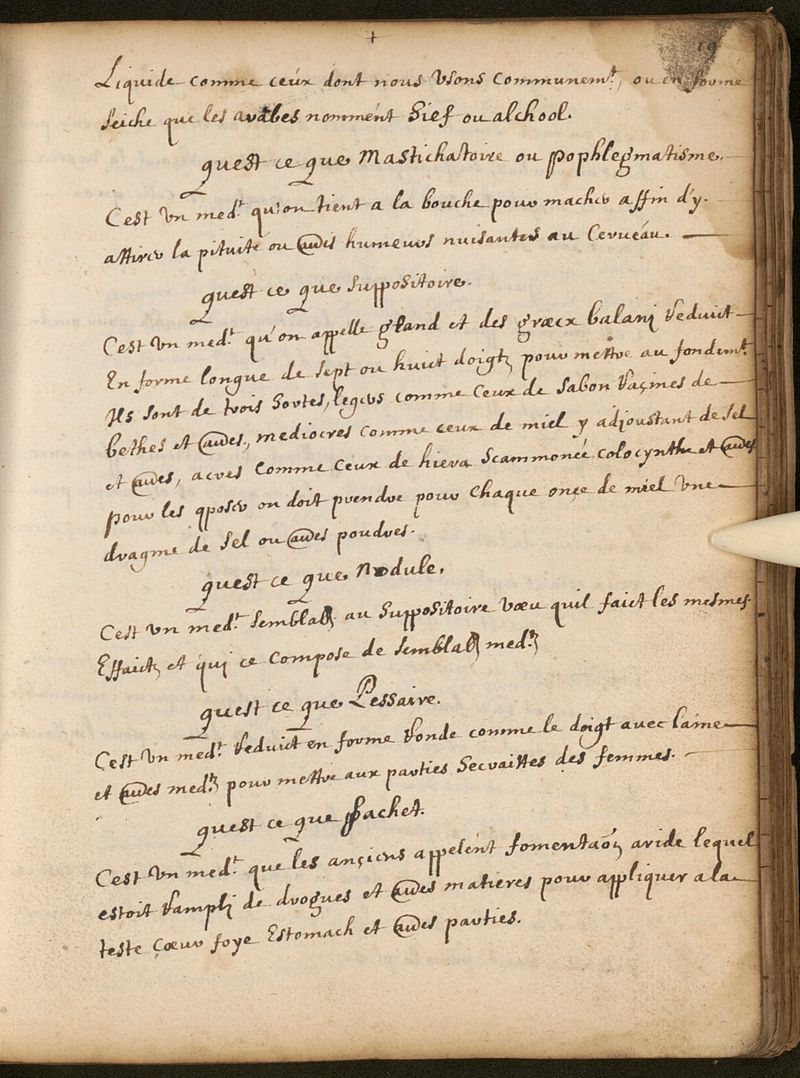 +
19
Liquide comme ceux dont nous Usons communem.t, ou en forme
seiche que les arabes nomment Sief ou alchool.
quest ce que Mastichatoire ou pophlegmatisme.
C'est Un med.t qu'on tient a la bouche pour macher affin d'y
attirer la pituite ou aues humeurs nuisantes au Cerueau.
quest ce que Suppositoire.
C'est Un med.t qu'on appelle gland et des græcx balanj reduict
En forme longue de sept ou huict doigtz pour mettre au fondem.t
Ils sont de trois Sortes, legers comme ceux de sabon raçines de
bethes et aues, mediocres comme ceux de miel y adjoustant de sel
et aues, acres comme ceux de hiera scammonée colocynthe et aues
pour les qposer on doit prendre pour chaque onçe de miel Une
dragme de sel ou aues poudres.
quest ce que Nodule.
C'est Un med.t semblab au Suppositoire voeu quil faict les mesmes
Effaictz et qui ce compose de semblab med.tz
quest ce que Pessaire.
C'est Un med.t reduict en forme ronde comme le doigt avec laine
et aues med.tz pour mettre aux parties Secraittes des femmes.
quest ce que Sachet.
C'est Un med.t que les ançiens appelént fomentaõn aride lequel
estoit rampli de drogues et aues matieres pour appliquer a la
teste cœur foye Estomach et aues parties.